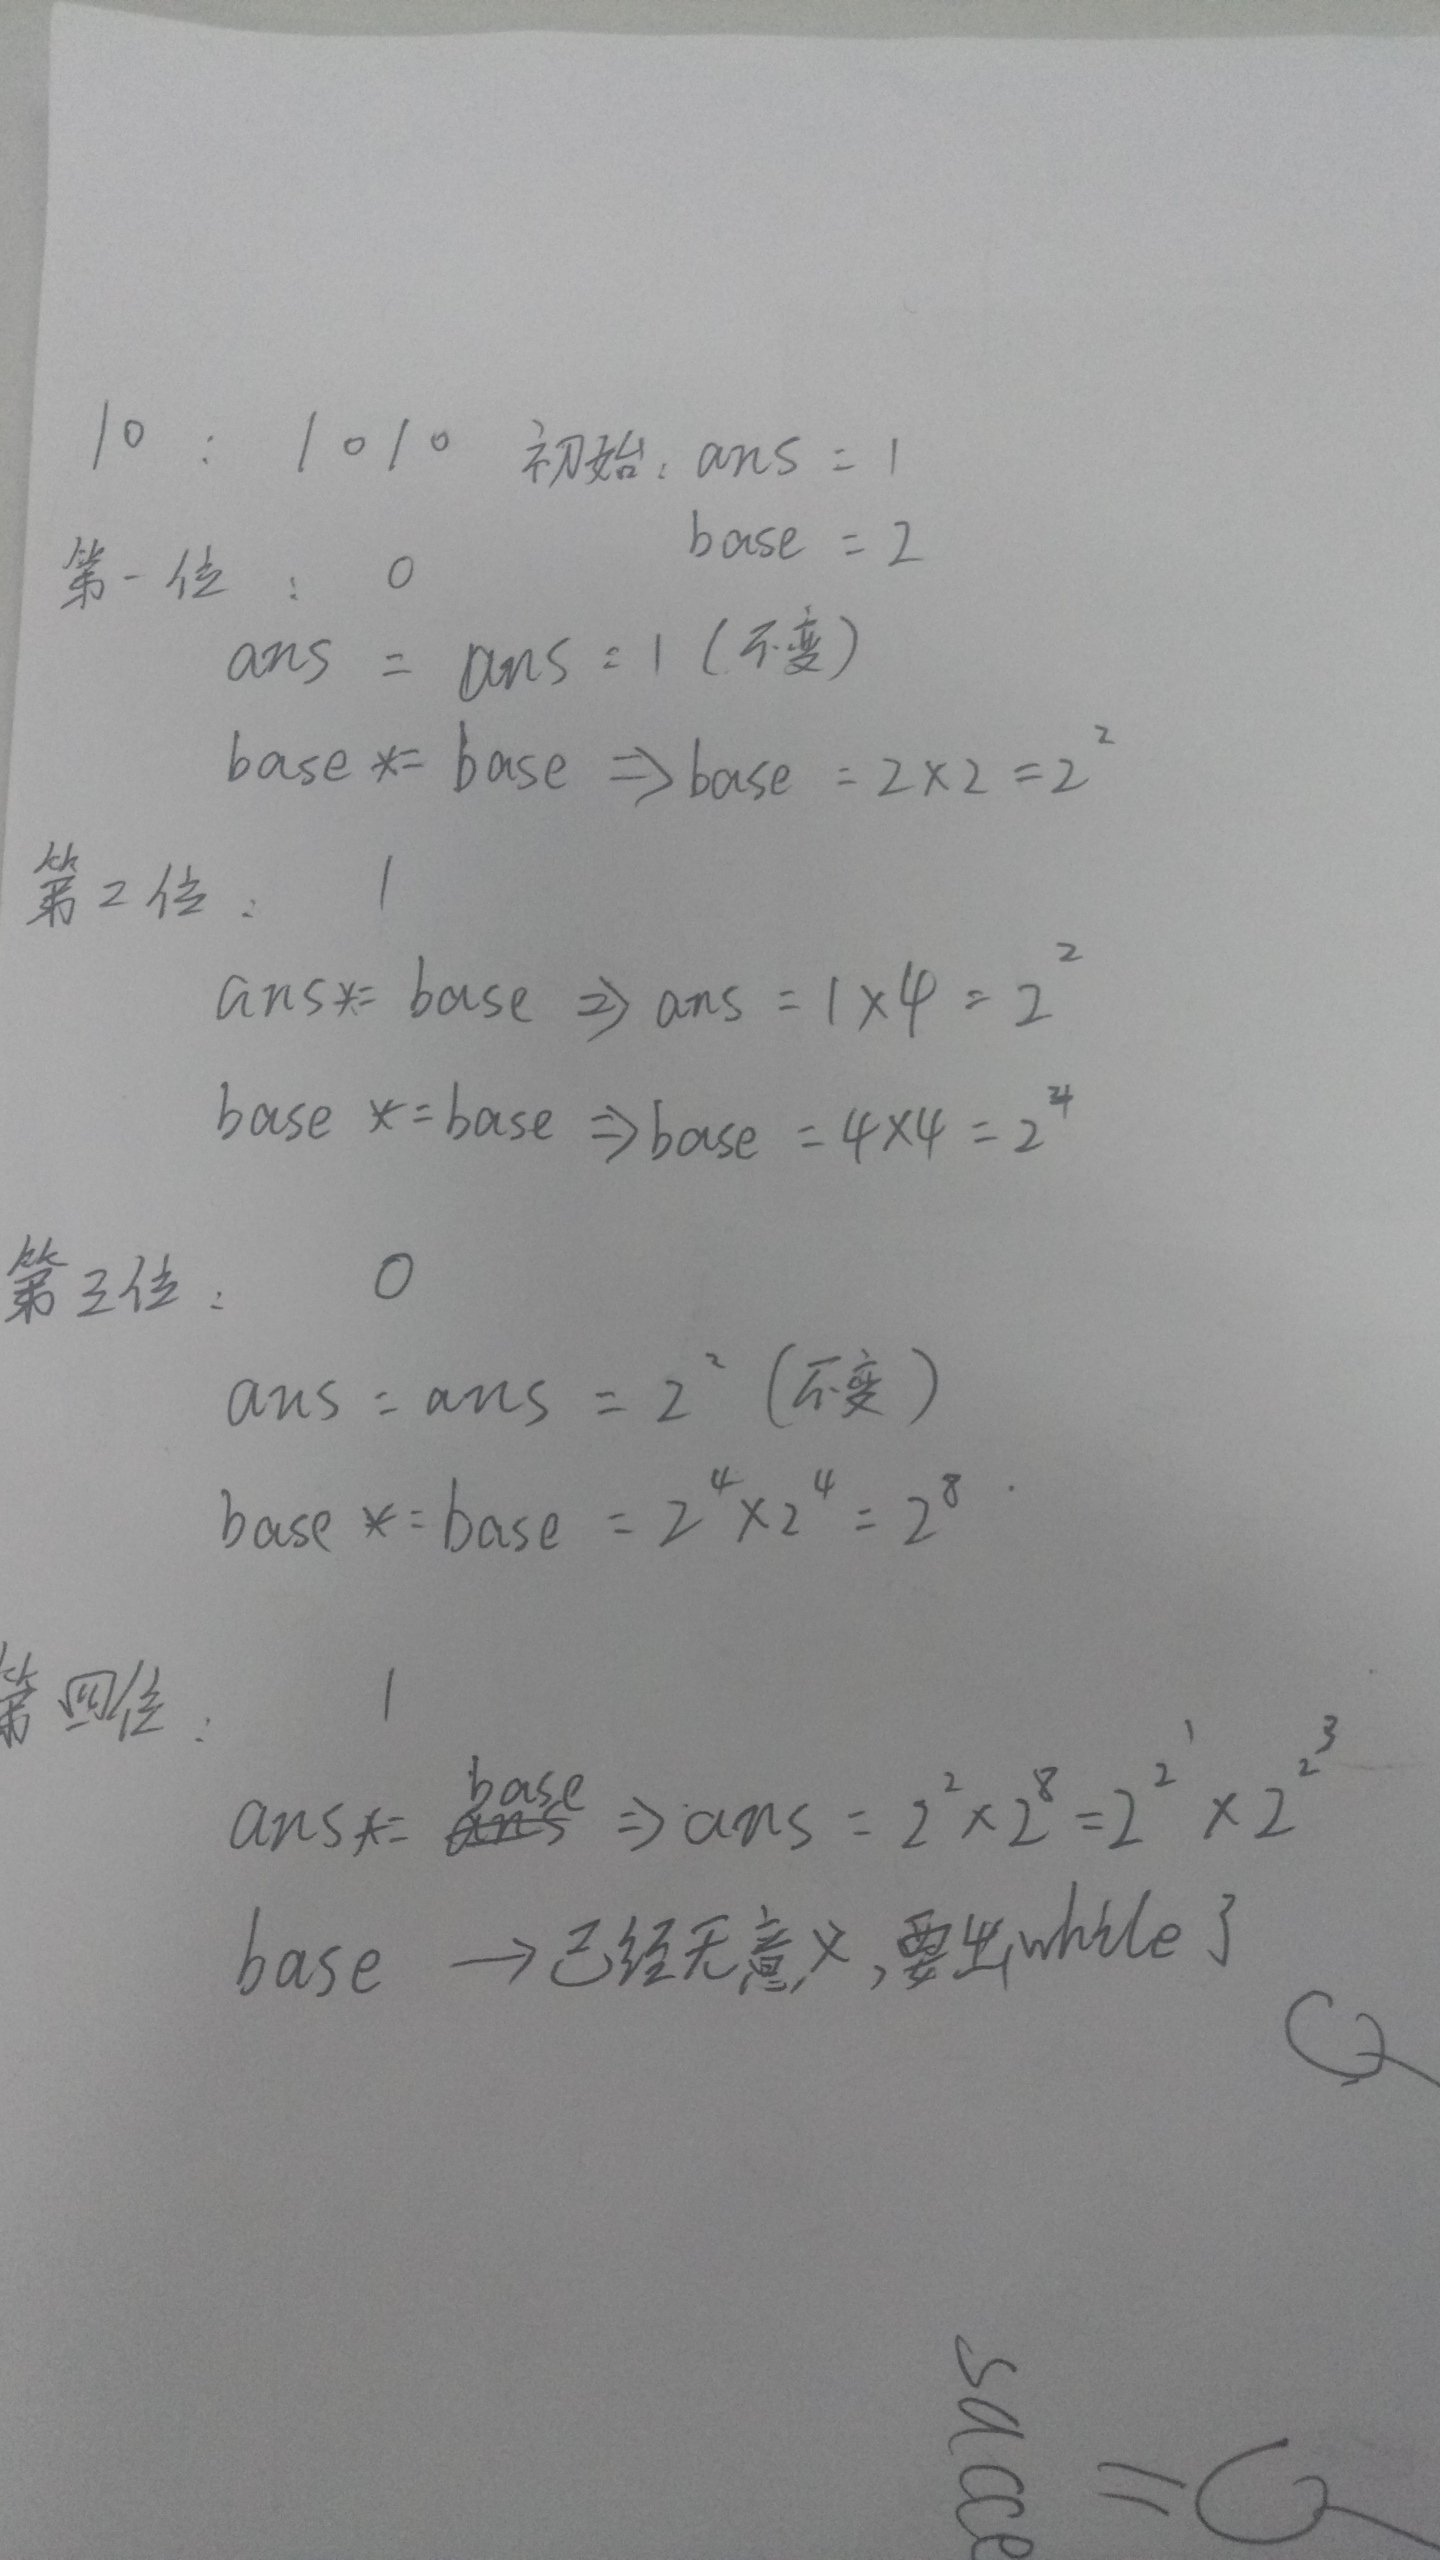 10 : 1010 初始: ans = 1
base = 2
第一位 : 0
ans = ans = 1 (不变)
base *= base => base = 2×2 = 2²
第2位 : 1
ans *= base => ans = 1×4 = 2²
base *= base => base = 4×4 = 2⁴
第三位 : 0
ans = ans = 2² (不变)
base *= base = 2⁴×2⁴ = 2⁸
第四位 : 1
ans *= base => ans = 2²×2⁸ = 2^2^1 × 2^2^3
base → 已经无意义,要出while了